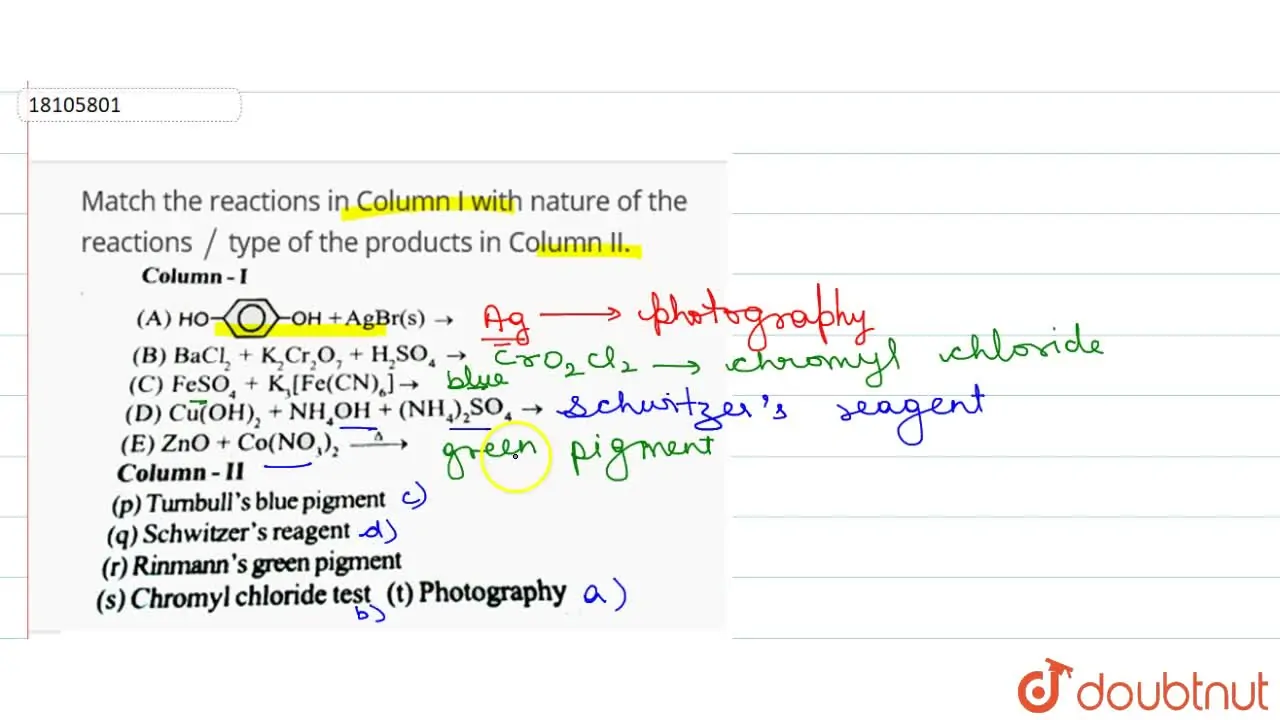 18105801
Match the reactions in Column I with nature of the
reactions / type of the products in Column II.
Column - I
(A) HO-⌬-OH + AgBr(s) → Ag → photography
(B) BaCl₂ + K₂Cr₂O₇ + H₂SO₄ → CrO₂Cl₂ → chromyl chloride
(C) FeSO₄ + K₃[Fe(CN)₆] → blue
(D) Cu(OH)₂ + NH₄OH + (NH₄)₂SO₄ → Schwitzer's reagent
(E) ZnO + Co(NO₃)₂ —Δ→ green pigment
Column - II
(p) Turnbull's blue pigment c)
(q) Schwitzer's reagent d)
(r) Rinmann's green pigment
(s) Chromyl chloride test b) (t) Photography a)
doubtnut